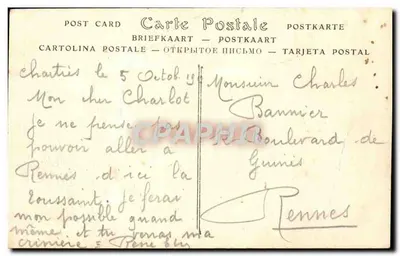 POST CARD Carte Postale POSTKARTE
BRIEFKAART — POSTKAART
CARTOLINA POSTALE — ОТКРЫТОЕ ПИСЬМО — TARJETA POSTAL
Chartres le 5 Octob 19
Mon cher Charlot
je ne pense pas
pouvoir aller à
Rennes d'ici la
Toussaint. Je ferai
mon possible quand
même et tu verras ma
crinière = René
Monsieur Charles
Bannier
Boulevard de
Guines
Rennes